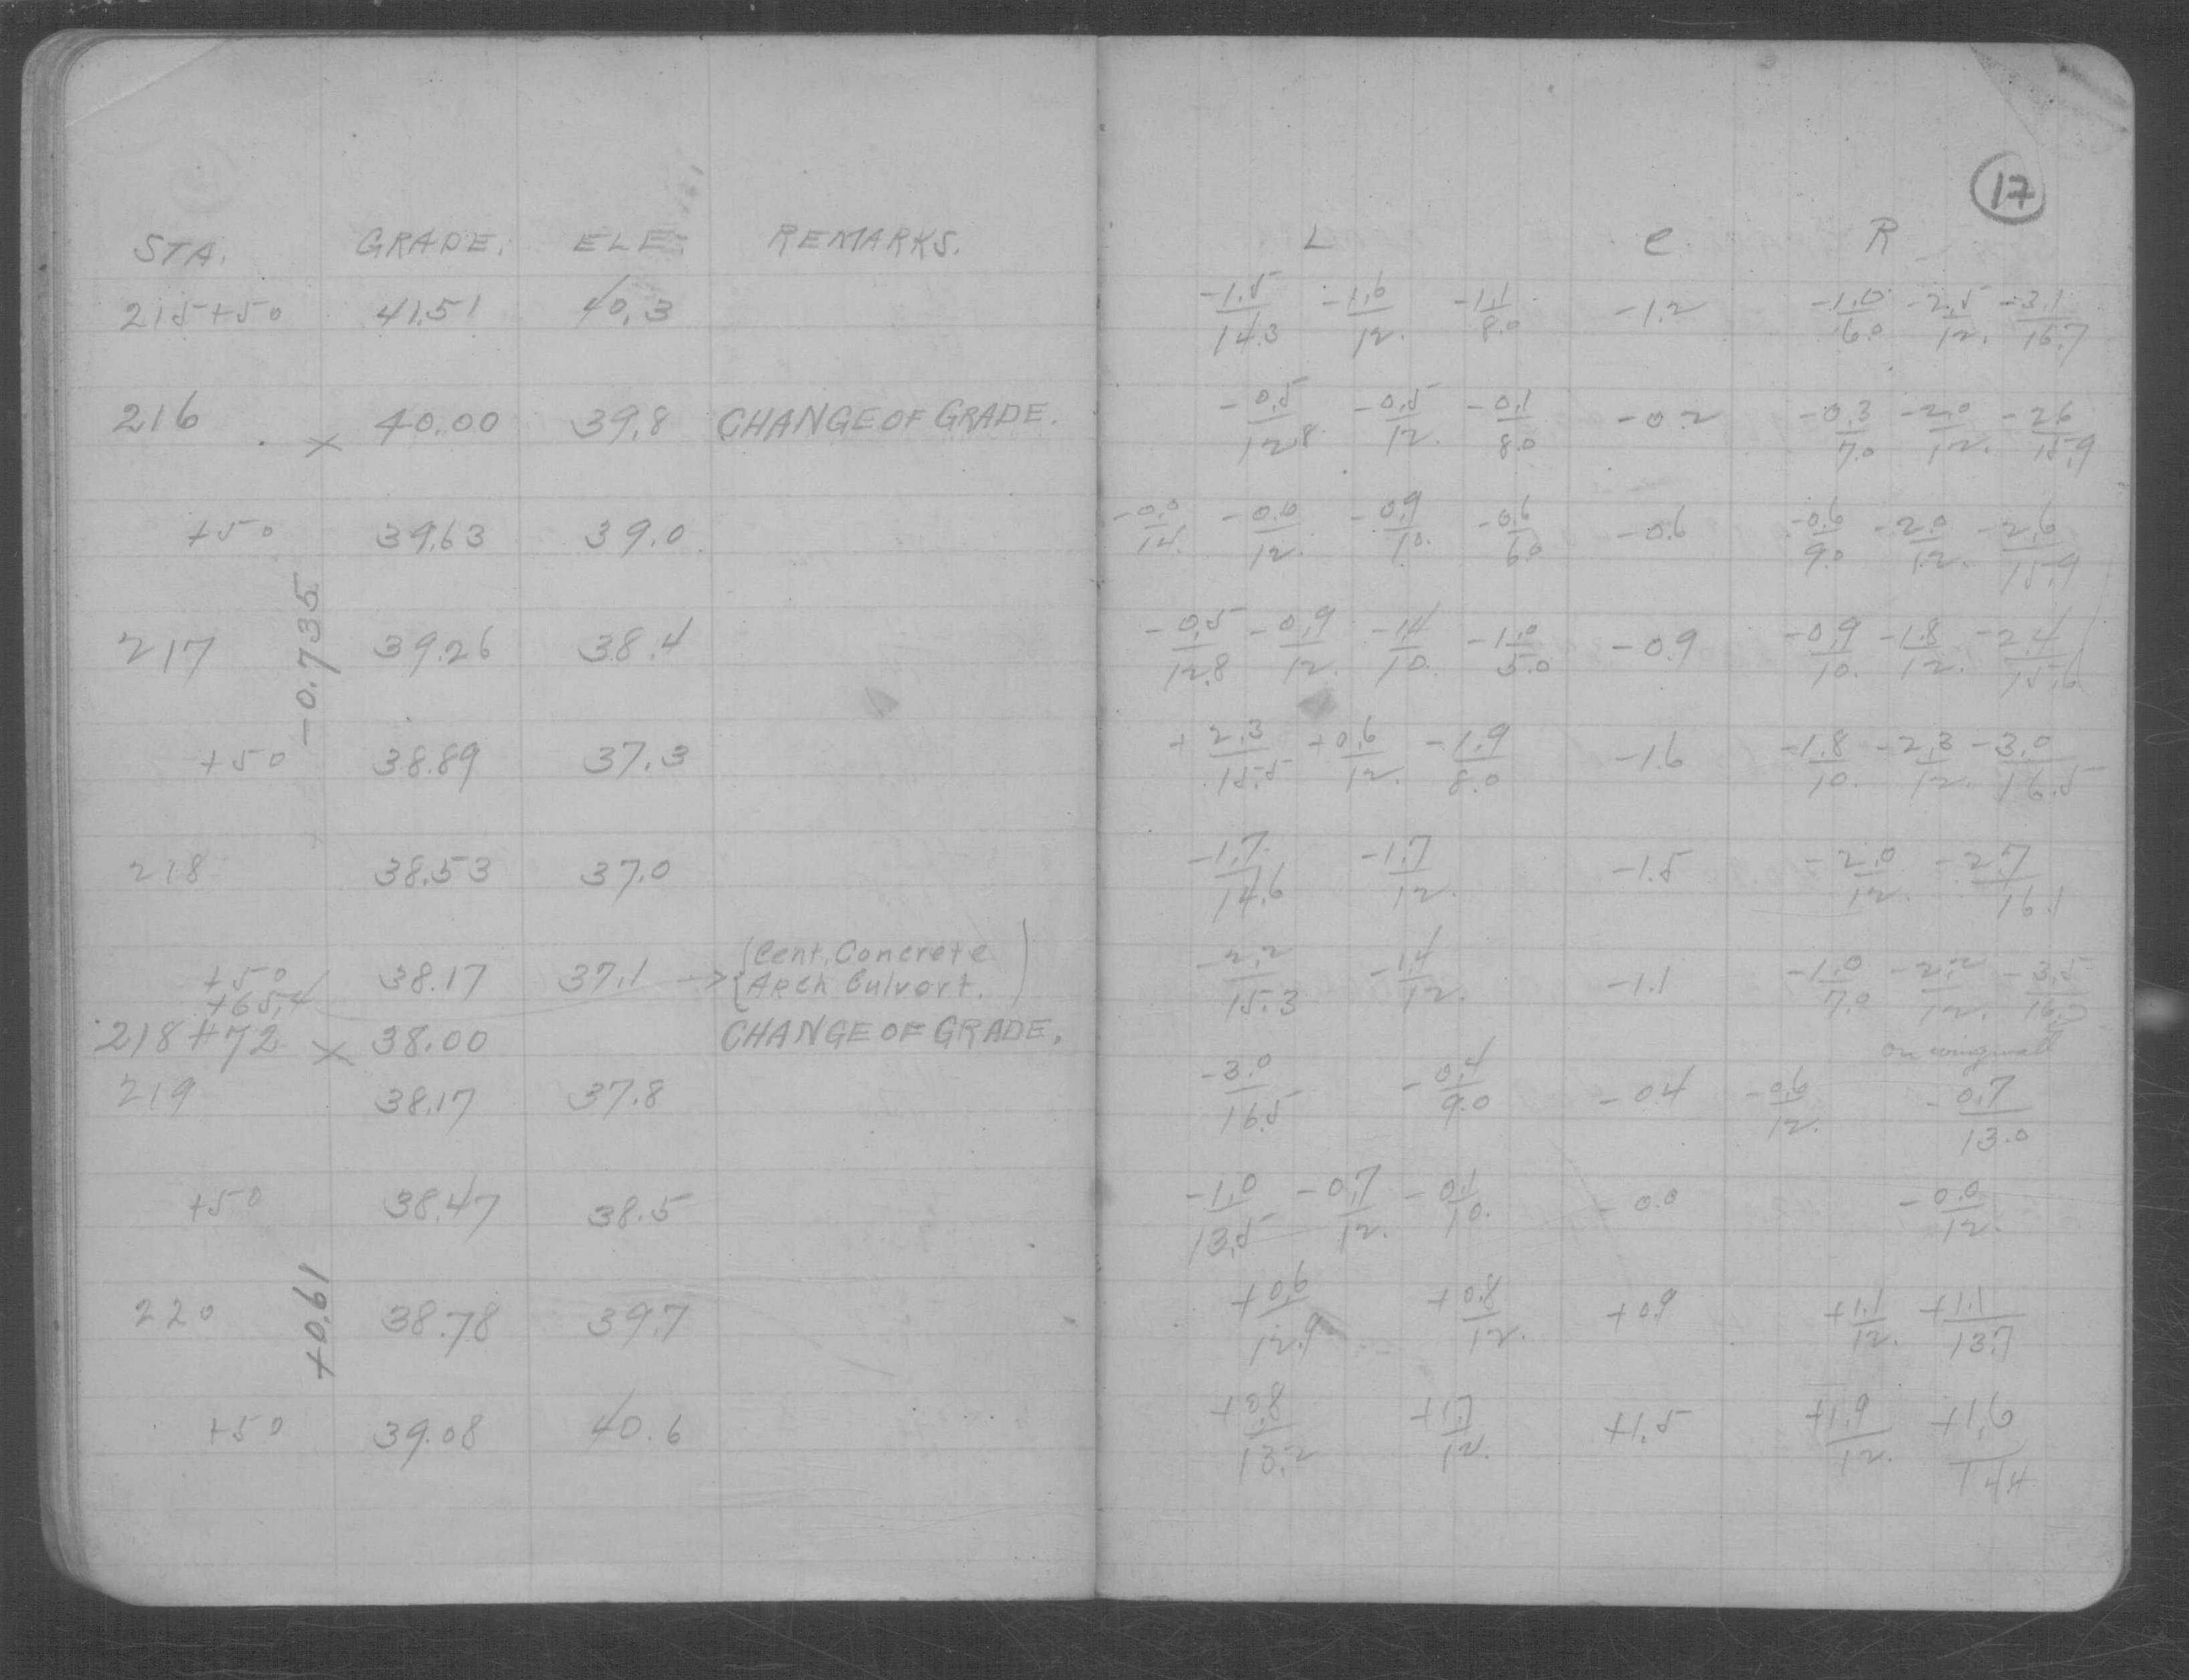 17
STA. GRADE. ELE. REMARKS. L C R
215+50 41.51 40.3 -1.5/14.3 -1.6/12. -1.1/8.0 -1.2 -1.0/6.0 -2.5/12. -3.1/16.7
216 x 40.00 39.8 CHANGE OF GRADE. -0.5/12.8 -0.5/12. -0.1/8.0 -0.2 -0.3/7.0 -2.0/12. -2.6/15.9
+50 39.63 39.0 -0.0/12. -0.6/12. -0.9/10. -0.6/6.0 -0.6 -0.6/9.0 -2.0/12. -2.6/15.9
-0.735
217 39.26 38.4 -0.5/12.8 -0.9/12. -1.4/10. -1.0/5.0 -0.9 -0.9/10. -1.8/12. -2.4/15.6
+50 38.89 37.3 +2.3/15.5 +0.6/12. -1.9/8.0 -1.6 -1.8/10. -2.3/12. -3.0/16.5
218 38.53 37.0 -1.7/14.6 -1.7/12. -1.5 -2.0/12. -2.7/16.1
+50 38.17 37.1 (Cent. Concrete -2.2/15.3 -1.4/12. -1.1 -1.0/7.0 -2.2/12. -3.5
+65.4 Arch Culvert.)
218+72 x 38.00 CHANGE OF GRADE. on wingwall
219 38.17 37.8 -3.0/16.5 -0.4/9.0 -0.4 -0.6/12. -0.7/13.0
+50 38.47 38.5 -1.0/13.5 -0.7/12. -0.1/10. 0.0 -0.0/12.
+0.61
220 38.78 39.7 +0.6/12.9 +0.8/12. +0.9 +1.1/12. +1.1/13.7
+50 39.08 40.6 +0.8/13.2 +1.7/12. +1.5 +1.9/12. +1.6/14.4